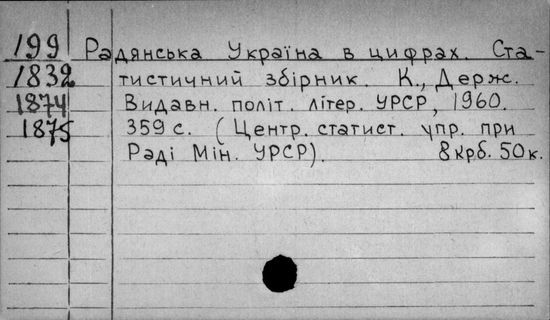 199 Радянська Україна в цифрах. Ста-
1832 тистичний збірник. К., Держ.
1874 Видавн. політ. літер. УРСР, 1960.
1875 359 с. (Центр. статист. упр. при
Раді Мін. УРСР). 8 крб. 50 к.